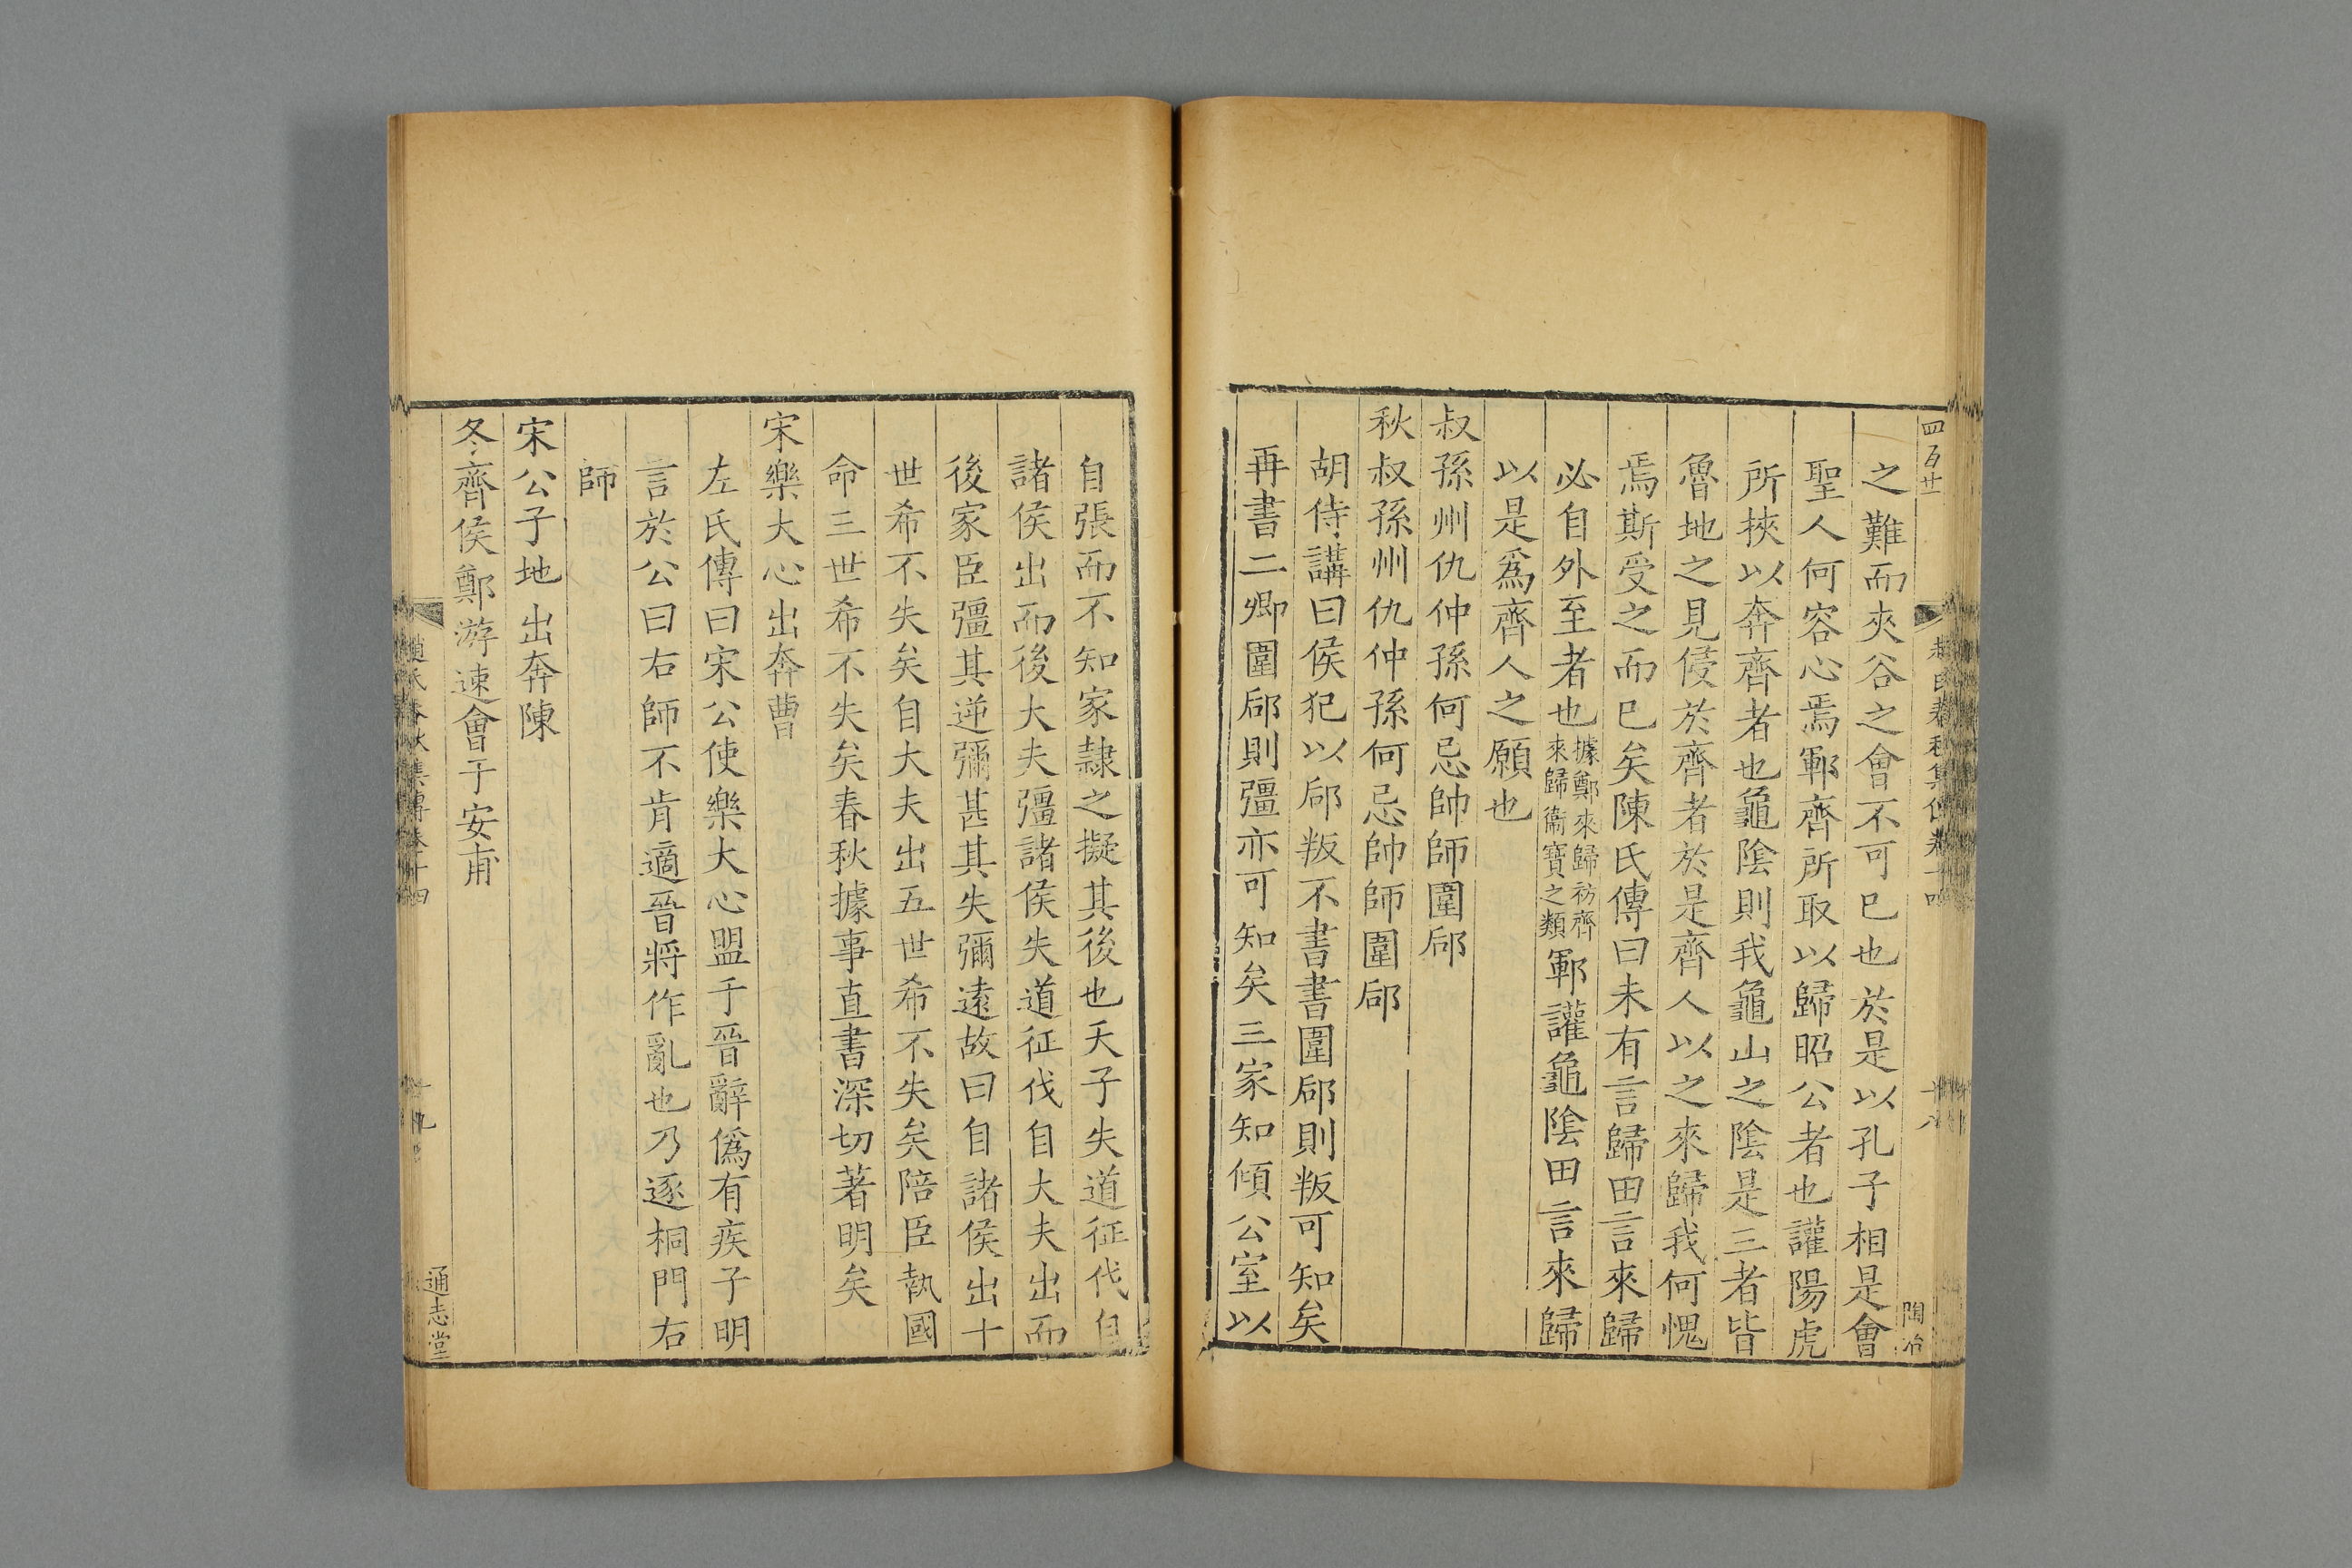 四百廿
趙氏春秋集傳卷十四
十八
陶冶
之難而夾谷之會不可已也於是以孔子相是會
聖人何容心焉鄆齊所取以歸昭公者也讙陽虎
所挾以奔齊者也龜陰則我龜山之陰是三者皆
魯地之見侵於齊者於是齊人以之來歸我何愧
焉斯受之而已矣陳氏傳曰未有言歸田言來歸
必自外至者也據鄭來歸祊齊來歸衞寶之類鄆讙龜陰田言來歸
以是爲齊人之願也
叔孫州仇仲孫何忌帥師圍郈
秋叔孫州仇仲孫何忌帥師圍郈
胡侍講曰侯犯以郈叛不書書圍郈則叛可知矣
再書二卿圍郈則彊亦可知矣三家知傾公室以
自張而不知家隷之擬其後也天子失道征伐自
諸侯出而後大夫彊諸侯失道征伐自大夫出而
後家臣彊其逆彌甚其失彌遠故曰自諸侯出十
世希不失矣自大夫出五世希不失矣陪臣執國
命三世希不失矣春秋據事直書深切著明矣
宋樂大心出奔曹
左氏傳曰宋公使樂大心盟于晉辭僞有疾子明
言於公曰右師不肯適晉將作亂也乃逐桐門右
師
宋公子地出奔陳
冬齊侯鄭游速會于安甫
趙氏春秋集傳卷十四
十九
通志堂